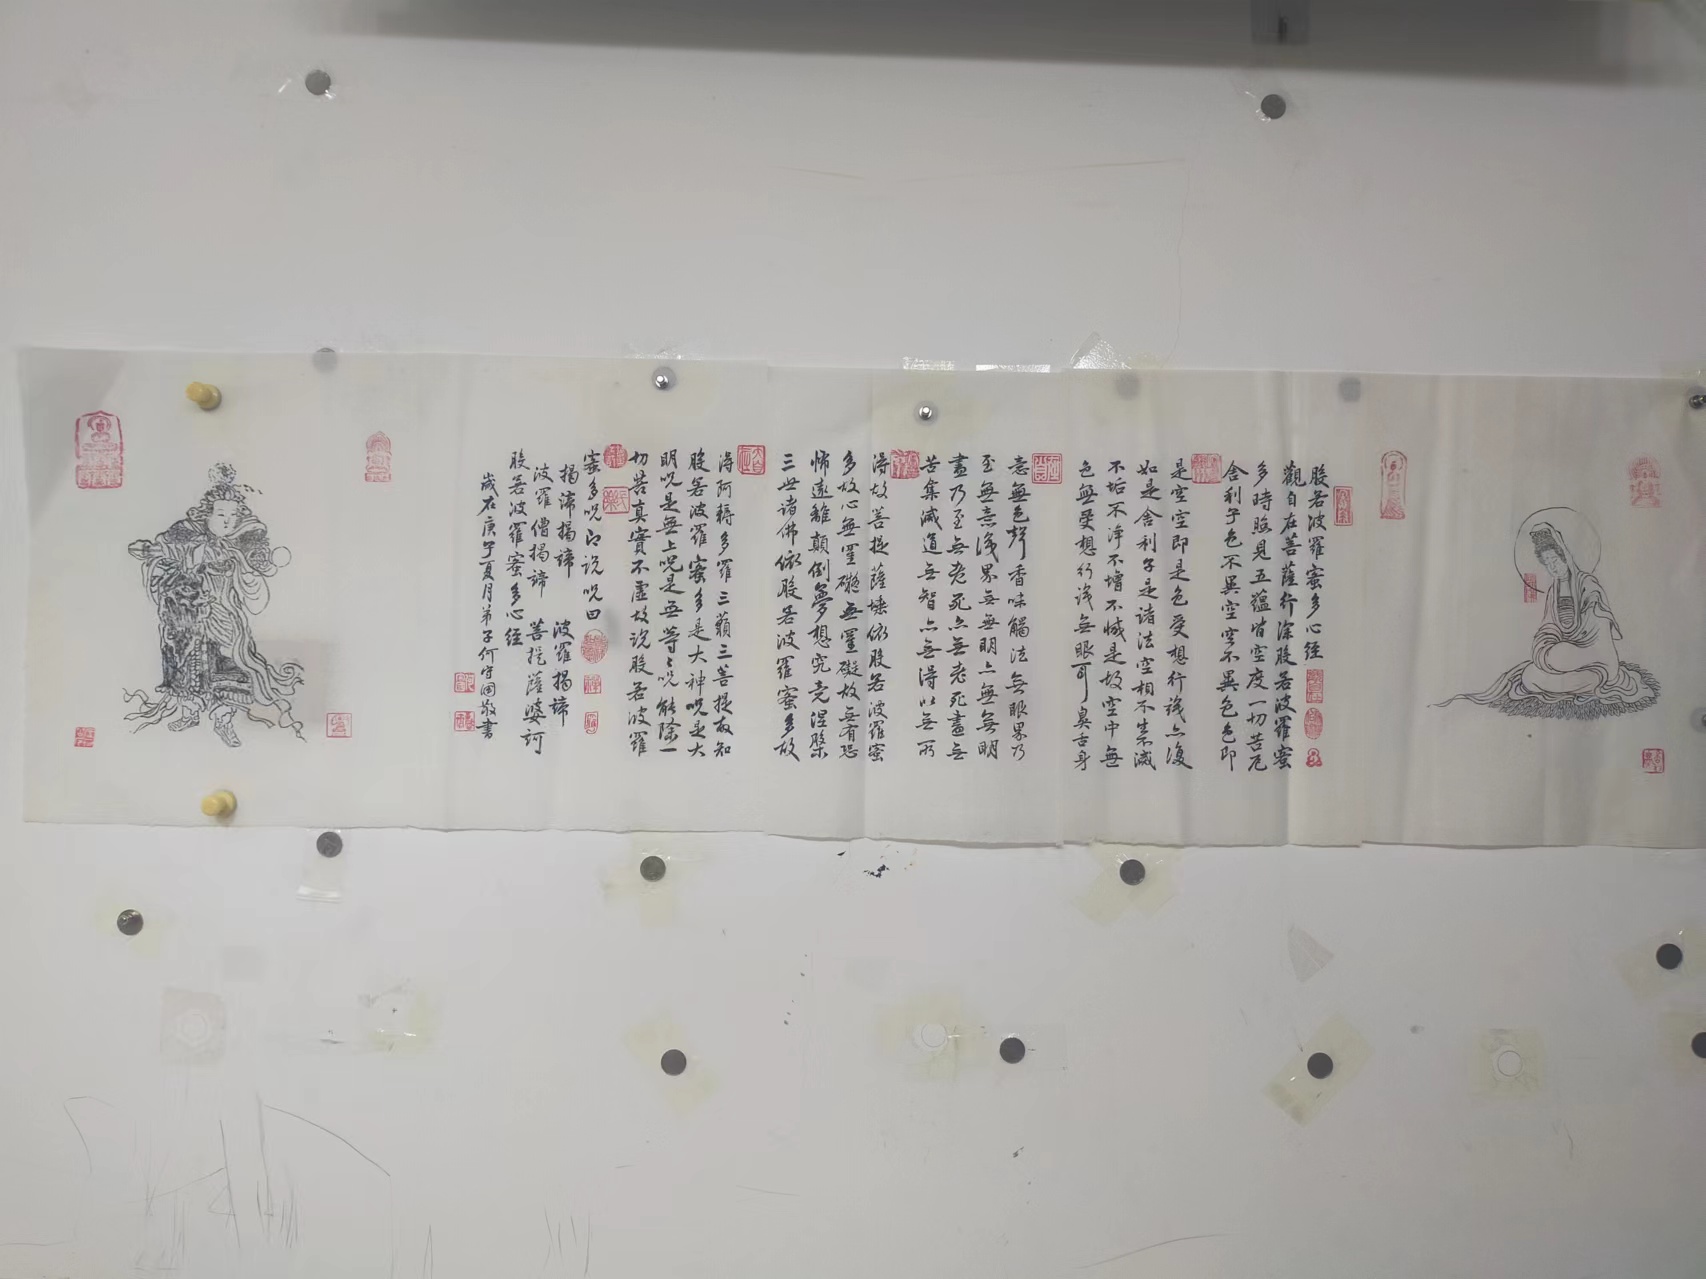 般若波羅蜜多心経
觀自在菩薩行深般若波羅蜜
多時照見五蘊皆空度一切苦厄
舍利子色不異空空不異色色即
是空空即是色受想行識亦復
如是舍利子是諸法空相不生不滅
不垢不淨不增不減是故空中無
色無受想行識無眼耳鼻舌身
意無色聲香味觸法无眼界乃
至無意識界无無明亦無無明
盡乃至无老死亦无老死盡无
苦集滅道无智亦无得以无所
得故菩提薩埵依般若波羅蜜
多故心無罣礙无罣礙故无有恐
怖遠離顛倒夢想究竟涅槃
三世諸佛依般若波羅蜜多故
得阿耨多羅三藐三菩提故知
般若波羅蜜多是大神呪是大
明呪是無上呪是无等々呪能除一
切苦真實不虛故說般若波羅
蜜多呪即說呪曰
揭諦揭諦 波羅揭諦
波羅僧揭諦 菩提薩婆訶
般若波羅蜜多心経
歲在庚子夏月弟子何守國敬書